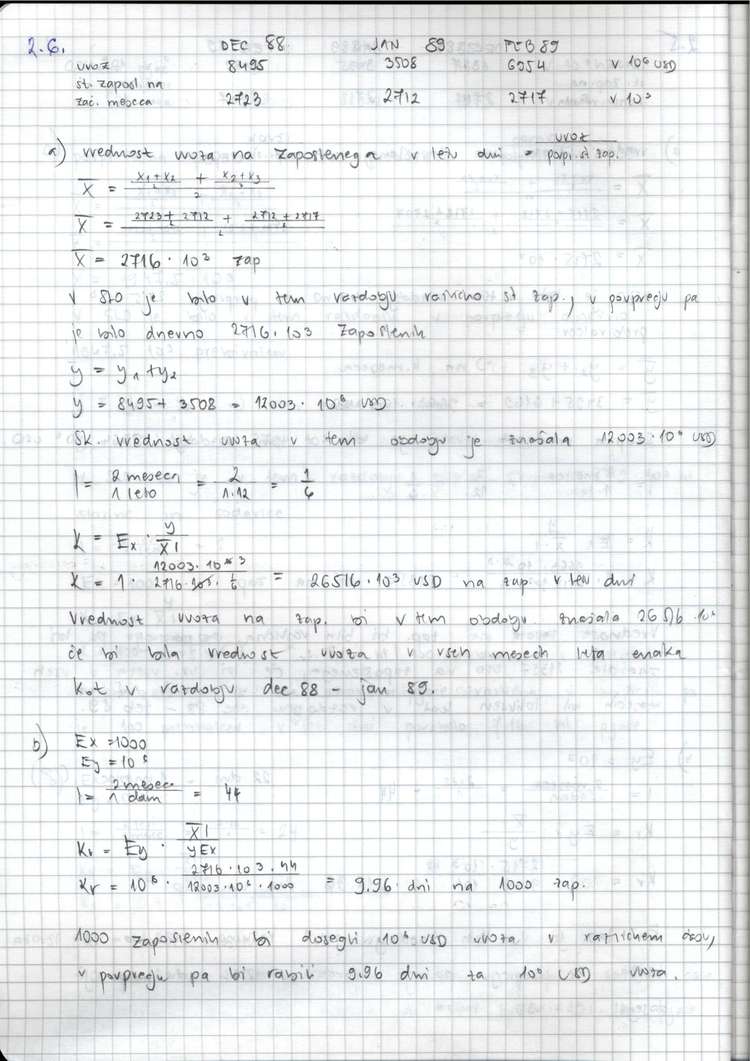 2.6. DEC 88 JAN 89 FEB 89
uvoz 8495 3508 6954 v 10⁶ USD
št. zaposl. na
zač. meseca 2723 2712 2717 v 10³
a) vrednost uvoza na zaposlenega v letu dni = uvoz / povpr. št. zap.
X̄ = ((x₁+x₂)/2 + (x₂+x₃)/2) / 2
X̄ = ((2723+2712)/2 + (2712+2717)/2) / 2
X̄ = 2716 · 10³ zap
V je bilo v tem razdobju različno št zap., v povprečju pa
je bilo dnevno 2716.103 zaposlenih
y = y₁ + y₂
y = 8495 + 3508 = 12003 · 10⁶ USD
Sk. vrednost uvoza v tem obdobju je znašala 12003 · 10⁶ USD
l = 2 meseca / 1 leto = 2 / 1.12 = 1/6
K = Ex · y / X̄ l
K = 1 · 12003 · 10³ / 2716 · 10³ · 1/6 = 26516 · 10³ USD na zap. v letu dni
Vrednost uvoza na zap. bi v tem obdobju znašala
če bi bila vrednost uvoza v vseh mesecih leta enaka
kot v razdobju dec 88 - jan 89.
b) Ex = 1000
Ey = 10⁶
l = 2 meseca / 1 dan = 44
Kr = Ey · X̄ l / y Ex
Kr = 10⁶ · 2716 · 10³ · 44 / 12003 · 10⁶ · 1000 = 9.96 dni na 1000 zap.
1000 zaposlenih bi dosegli 10⁶ USD uvoza v različnem času,
v povprečju pa bi rabili 9.96 dni za 10⁶ USD uvoza.